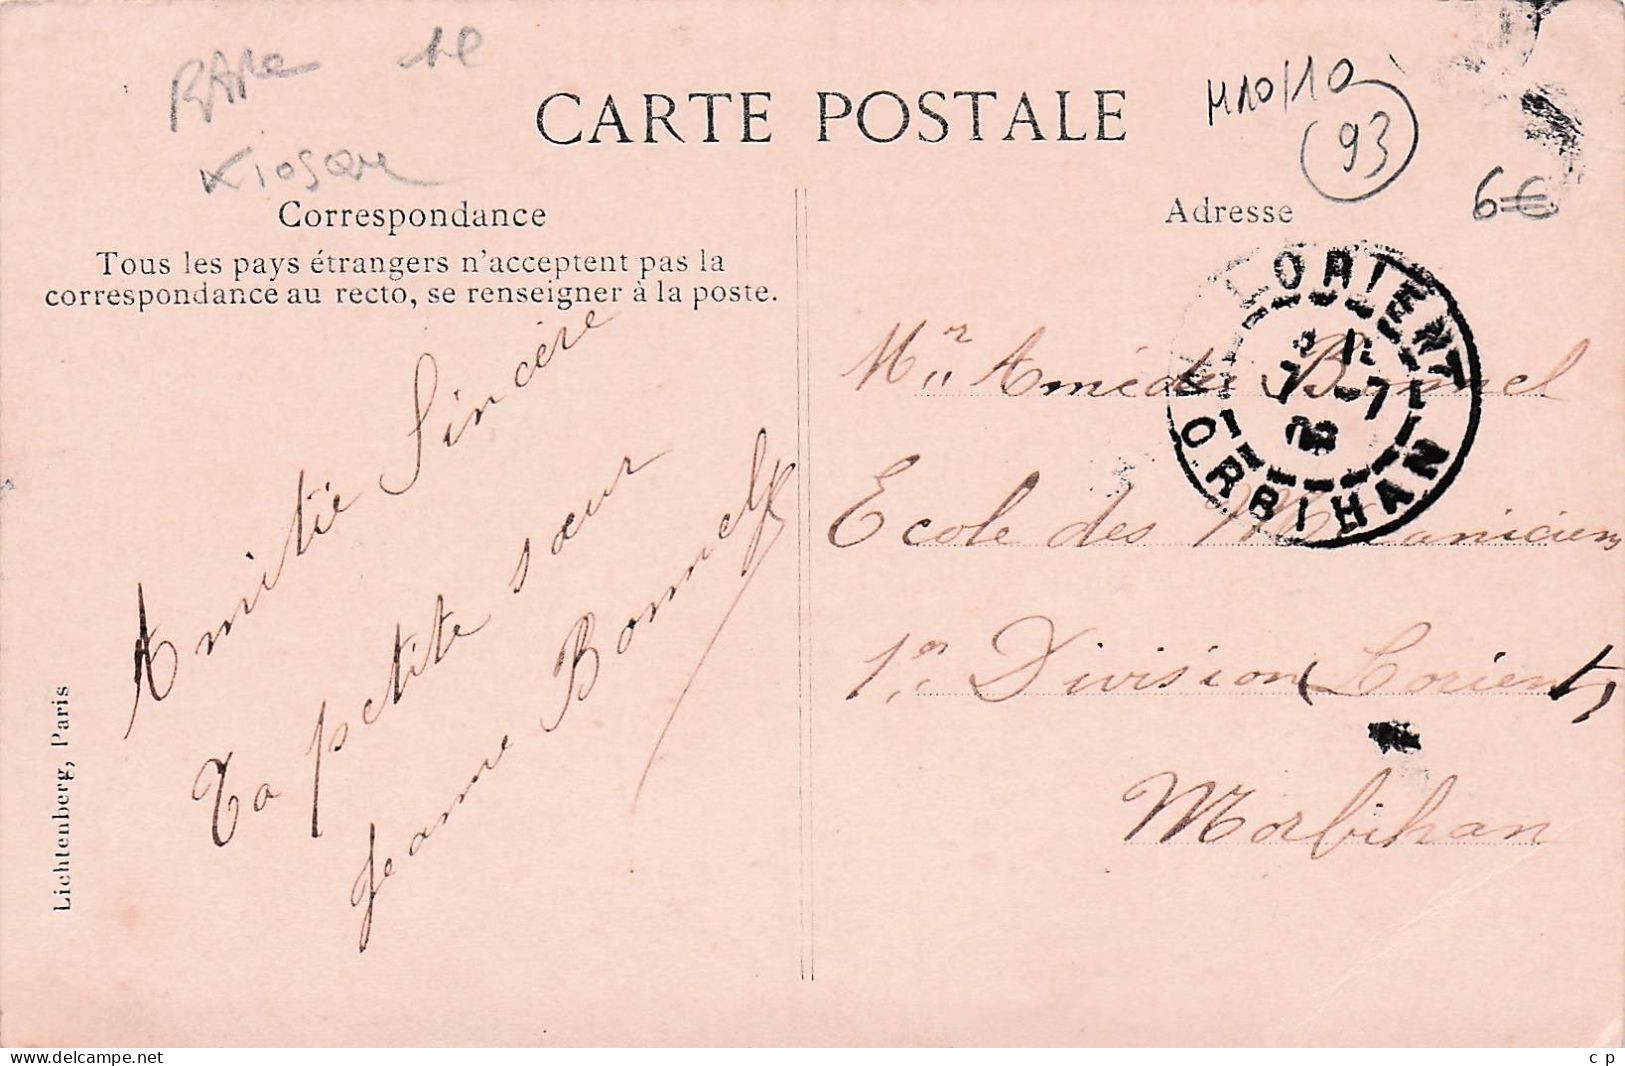 RARe
Le
Kiosque
CARTE POSTALE
M10/10
93
6€
Correspondance
Tous les pays étrangers n'acceptent pas la
correspondance au recto, se renseigner à la poste.
Amitié Sincère
Ta petite sœur
Jeanne Bonnel
Lichtenberg, Paris
Adresse
LORIENT
7 -7
MORBIHAN
Mr Amédée Bonnel
Ecole des Mécaniciens
1er Division (Lorient)
Morbihan
www.delcampe.net
c p